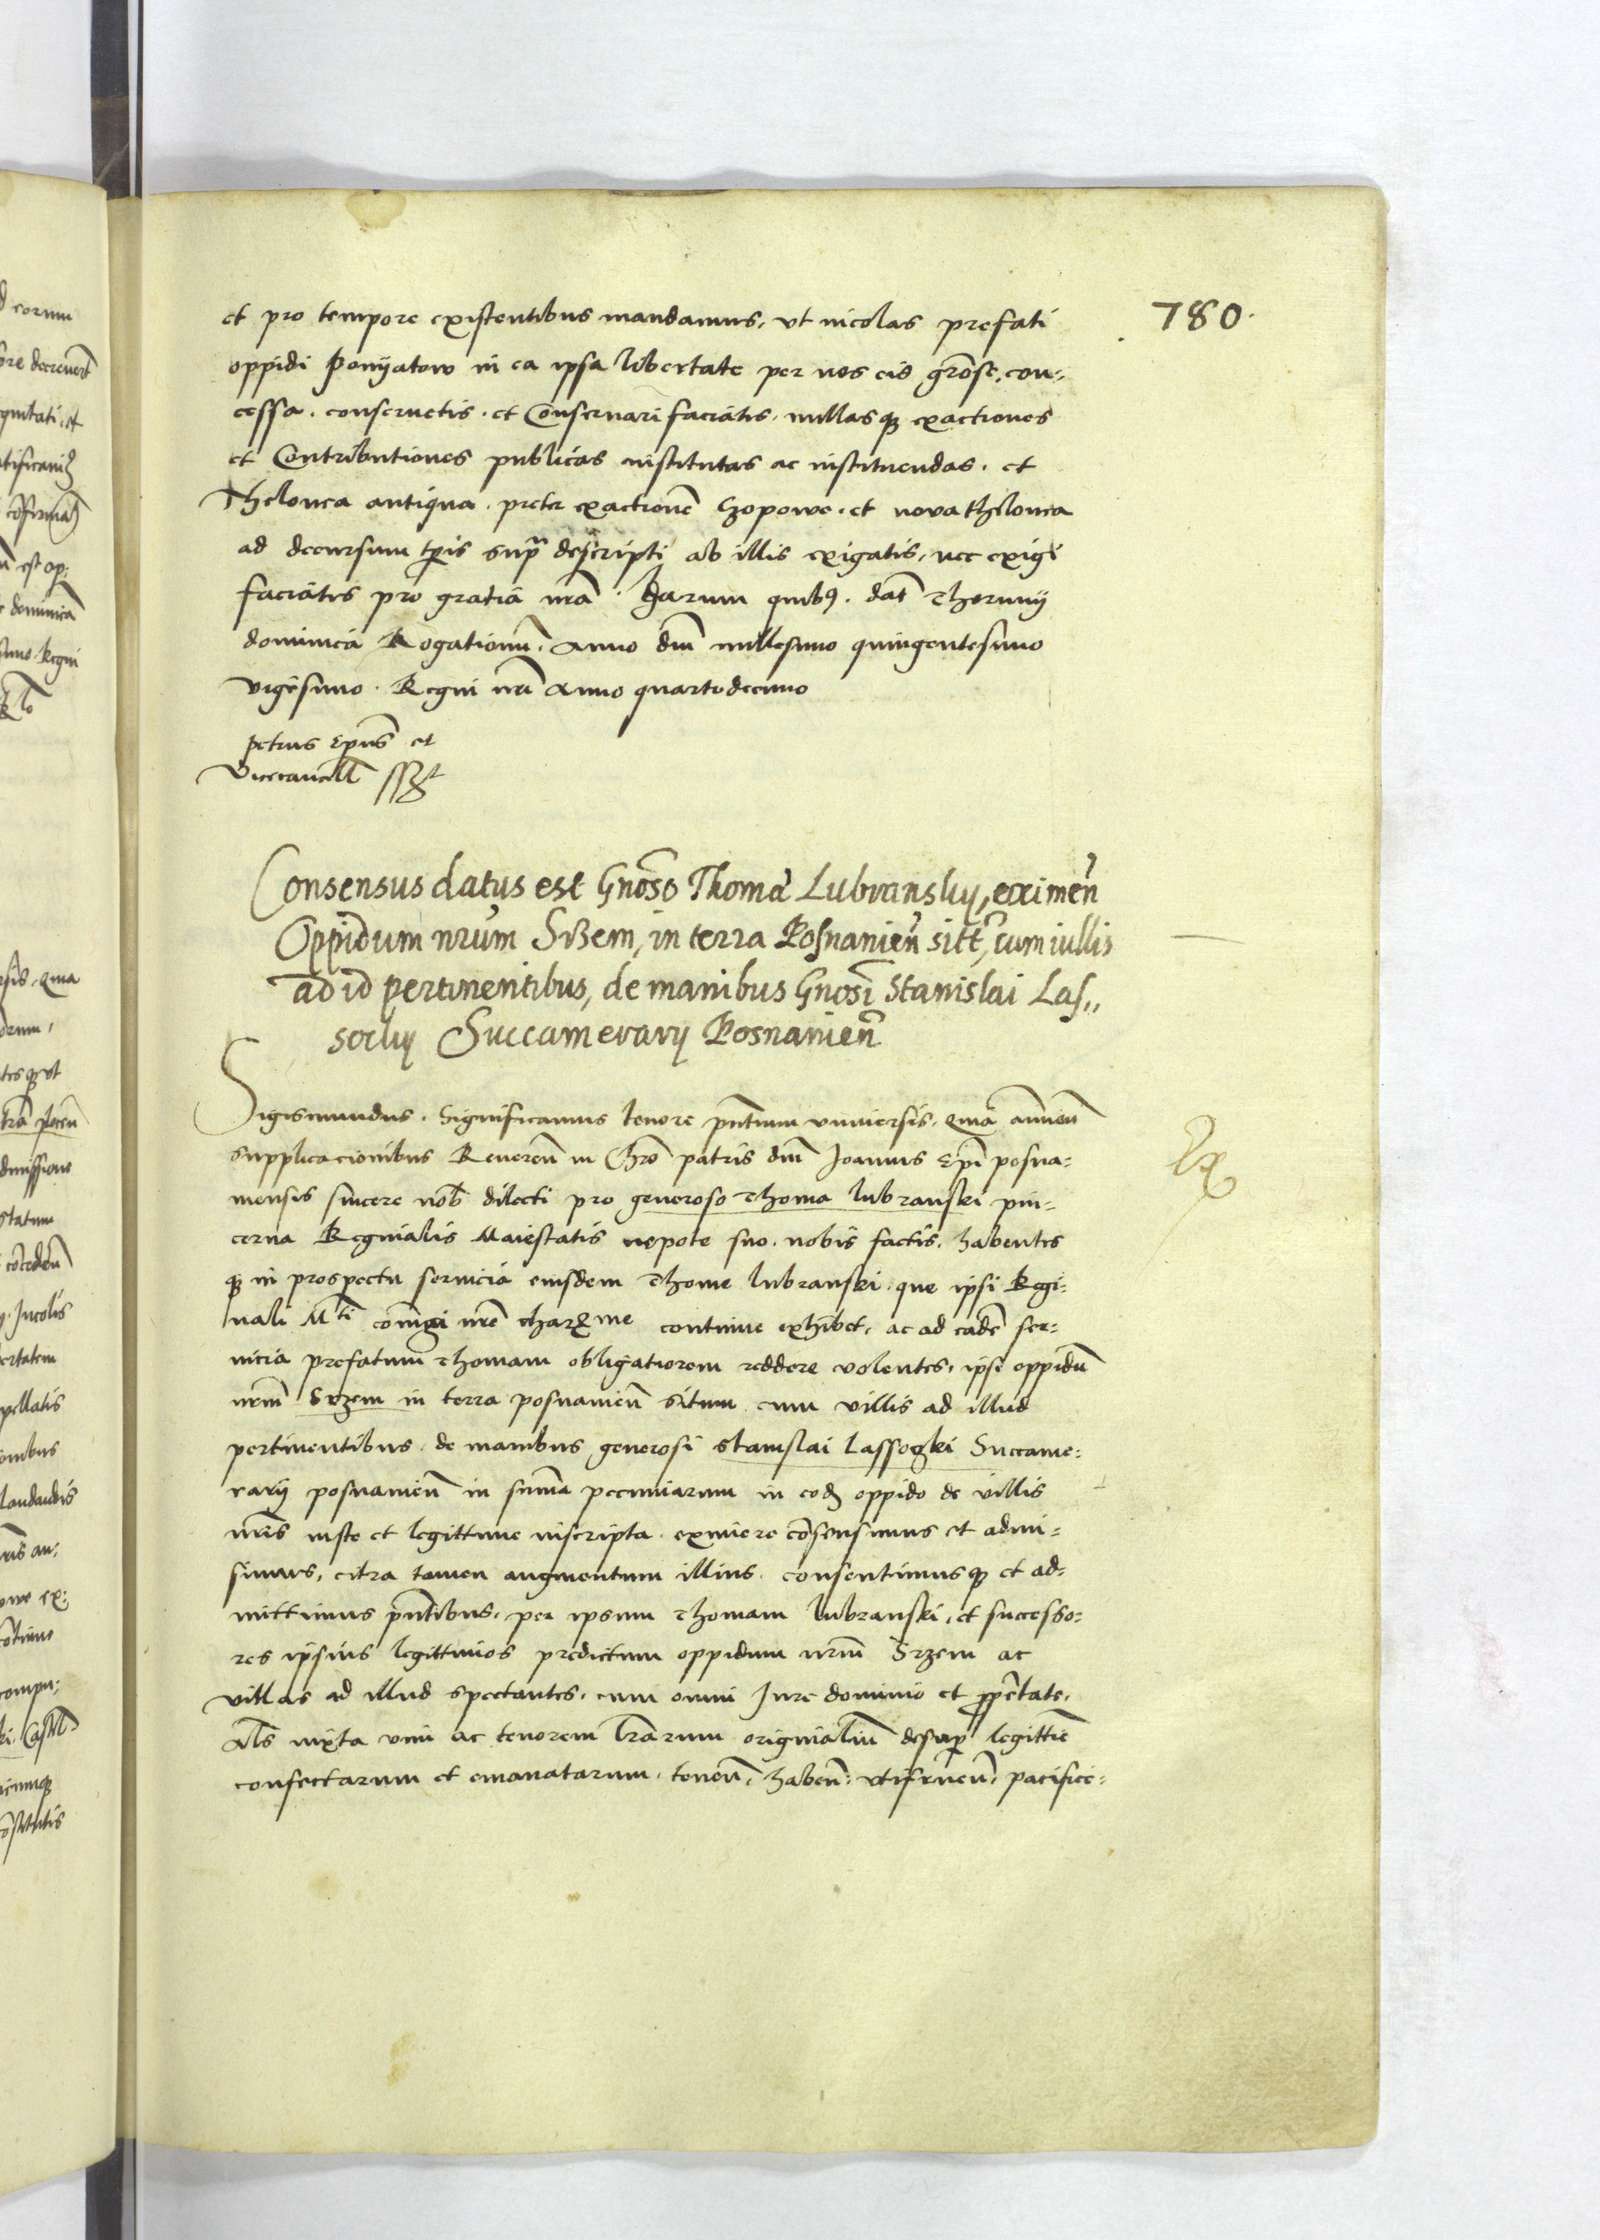 780.
et pro tempore existentibus mandamus, ut incolas prefati
oppidi Ponijatow in ea ipsa libertate per nos eis grōse, con-
cessa, conseruetis, et Conseruari faciatis, nullasq3 exactiones
et Contributiones publicas institutas ac instituendas, et
Thelonea antiqua, preter exactionē Czopowe, et nova thelonea
ad decursum tp̄is supra descripti ab illis exigatis, nec exigi
faciatis pro gratia nrā. Harum quibus. dat̄ Thorunij
dominica Rogationū, Anno dn̄i millesimo quingentesimo
vigesimo. Regni nr̄i Anno quartodecimo
petrus Ep̄us et
Vicecancell̄ sst
Consensus datus est Gnōso Thomæ Lubranskij, eximen̄
Oppidum nrūm Srzem, in terra Posnanien̄ sitt̄, cum uillis
ad id pertinentibus, de manibus Gnōsi Stanislai Las,,
sockij Succamerarij Posnanien̄
Sigismundus. Significamus tenore pn̄tium vniuersis. Quia annuen̄
supplicacionibus Reueren̄ in Chrō patris dn̄i Joannis Ep̄i posna-
niensis sincere nob̄ dilecti pro generoso Thoma lubranski pin-
cerna Reginalis Maiestatis nepote suo. nobis factis, habentes
q3 in prospectu seruicia eiusdem Thome lubranski, que ipsi Regi-
nali M^ti cōiugi nrē charx̄me continue exhibet, ac ad eadē ser-
uicia prefatum Thomam obligatiorem reddere volentes, ipsi oppidū
nrm̄ Srzem in terra posnanien̄ situm cum villis ad illud
pertinentibus de manibus generosi stanislai Lassogki Succame-
rarij posnanien̄ in sum̄a pecuniarum in eod̄ oppido de villis
nrīs iuste et legittime inscripta eximere cōsensimus et admi-
simus, citra tamen augmentum illius. consentimusq3 et ad-
mittimus pn̄tibus, per ipsum Thomam lubranski, et successo-
res ipsius legittimos predictum oppidum nrm̄ Srzem ac
villas ad illud spectantes, cum omni Jure dominio et pp̄etate,
Al̄s iuxta vim ac tenorem lrārum originaliū desup̄ legittīe
confectarum et emanatarum, tenen̄, haben̄, utifruen̄, pacifice-